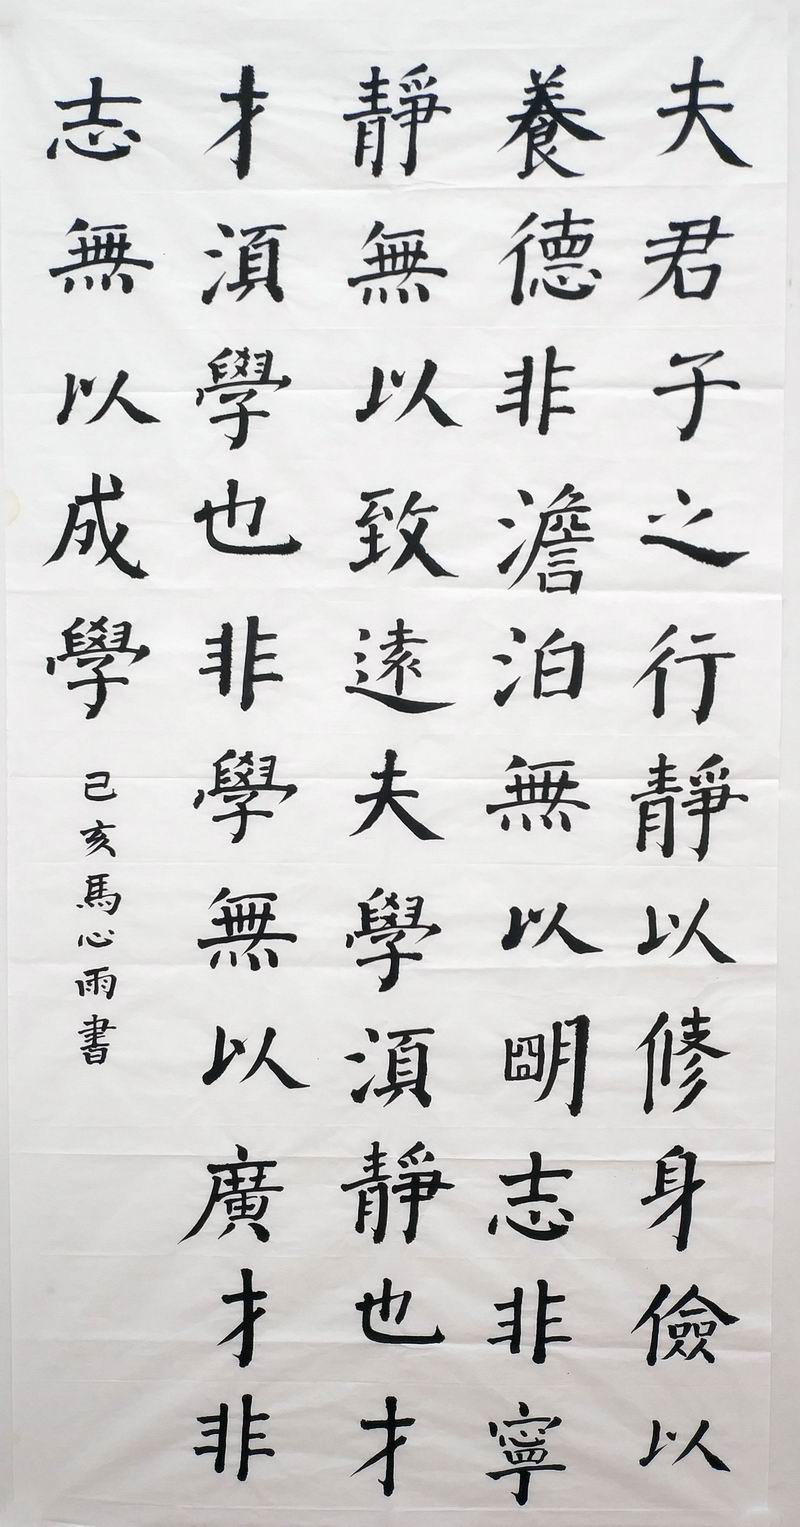 夫君子之行靜以修身儉以
養德非澹泊無以明志非寧
靜無以致遠夫學須靜也才
才須學也非學無以廣才非
志無以成學
己亥馬心雨書